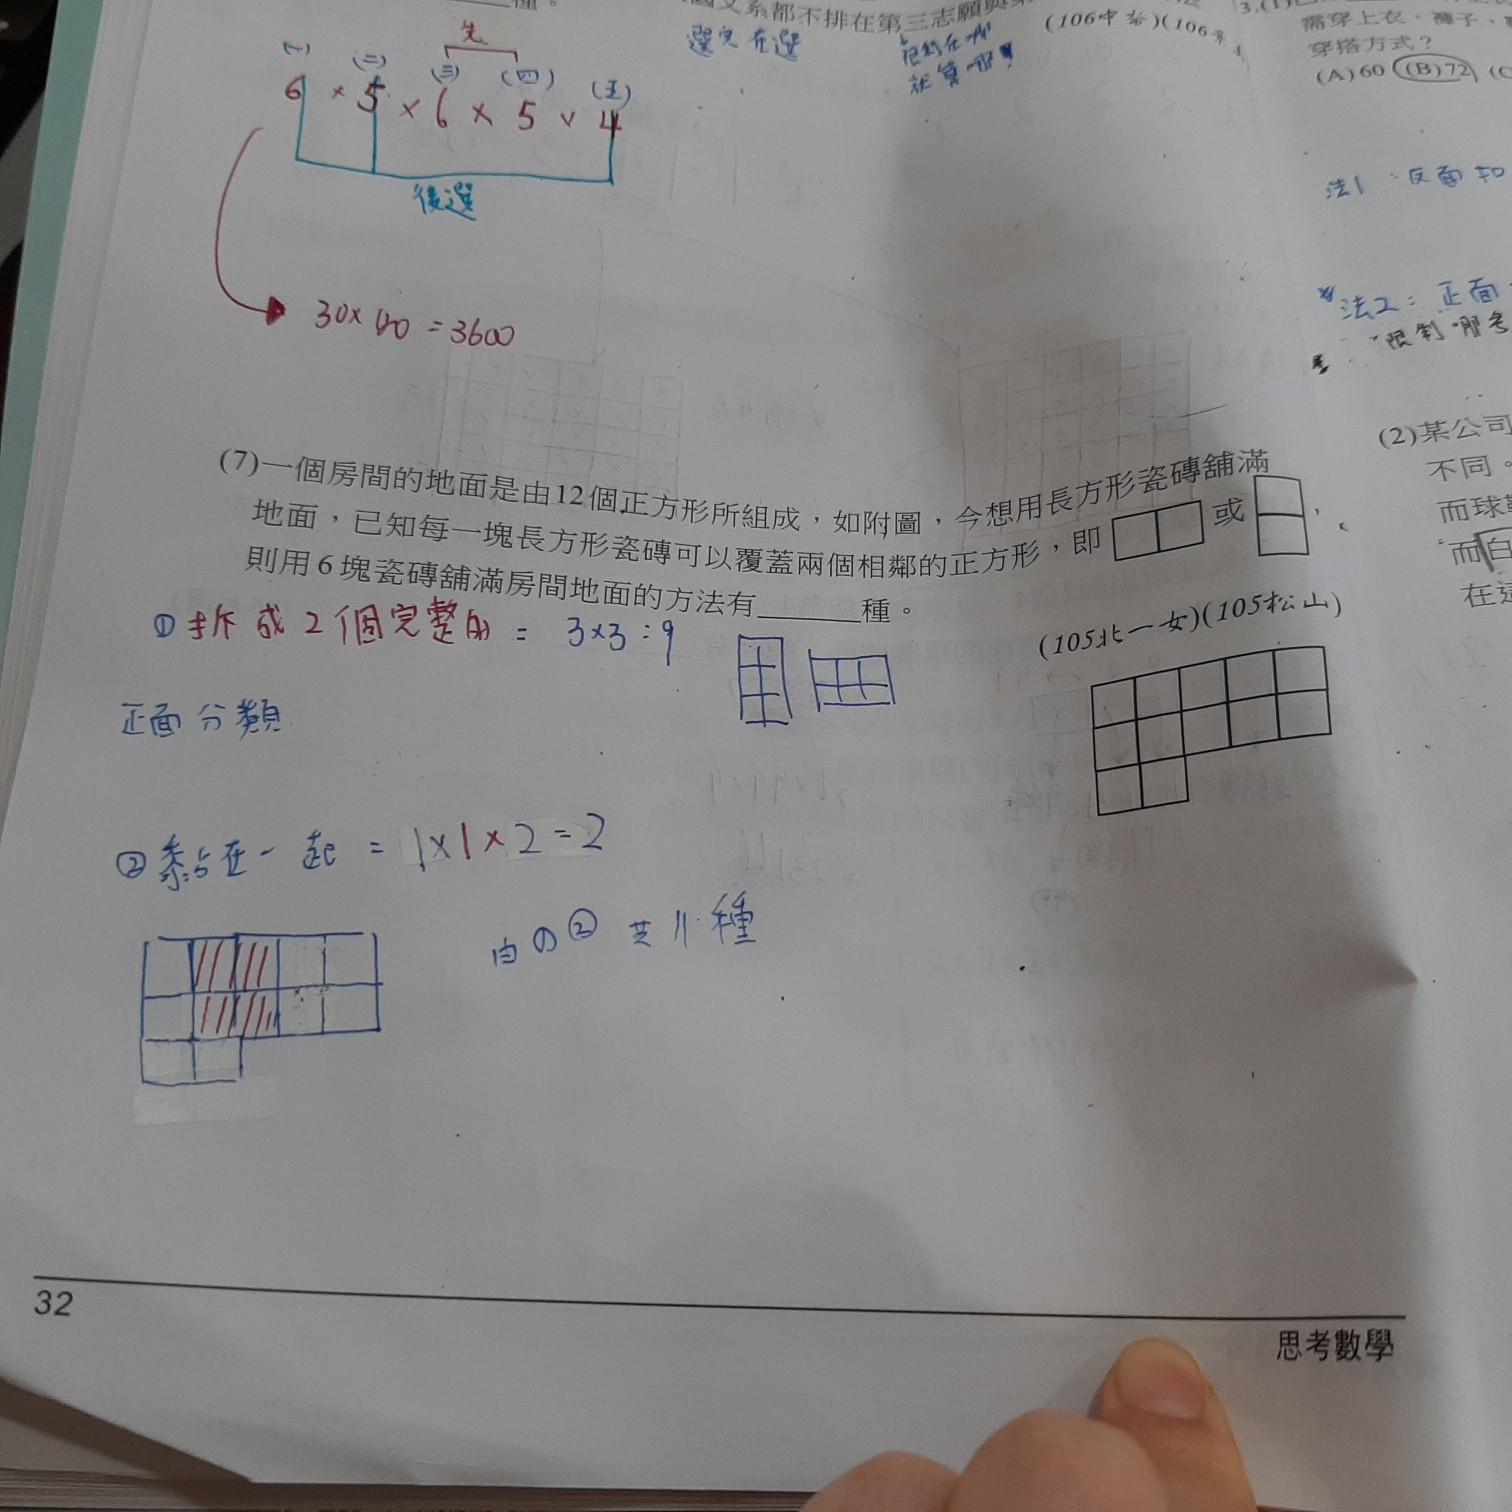 種。
都不排在第三志願
(106中
選完在選
就算哪
3.(1)
需穿上衣、褲子、
穿搭方式？
(A)60 (B)72 (C
先
(一) (二) (三) (四) (五)
6 × 5 × 6 × 5 × 4
後選
法1：反面
30×
=3600
法2：正面
限制哪
(7)一個房間的地面是由12個正方形所組成，如附圖，今想用長方形瓷磚舖滿
地面，已知每一塊長方形瓷磚可以覆蓋兩個相鄰的正方形，即 或 ，
則用6塊瓷磚舖滿房間地面的方法有______種。
(105北一女)(105松山)
① 拆成2個完整的 = 3×3=9
正面分類
② 黏在一起 = 1×1×2=2
由①② 共11種
(2)某公司
不同。
而球
而白
在這
32
思考數學